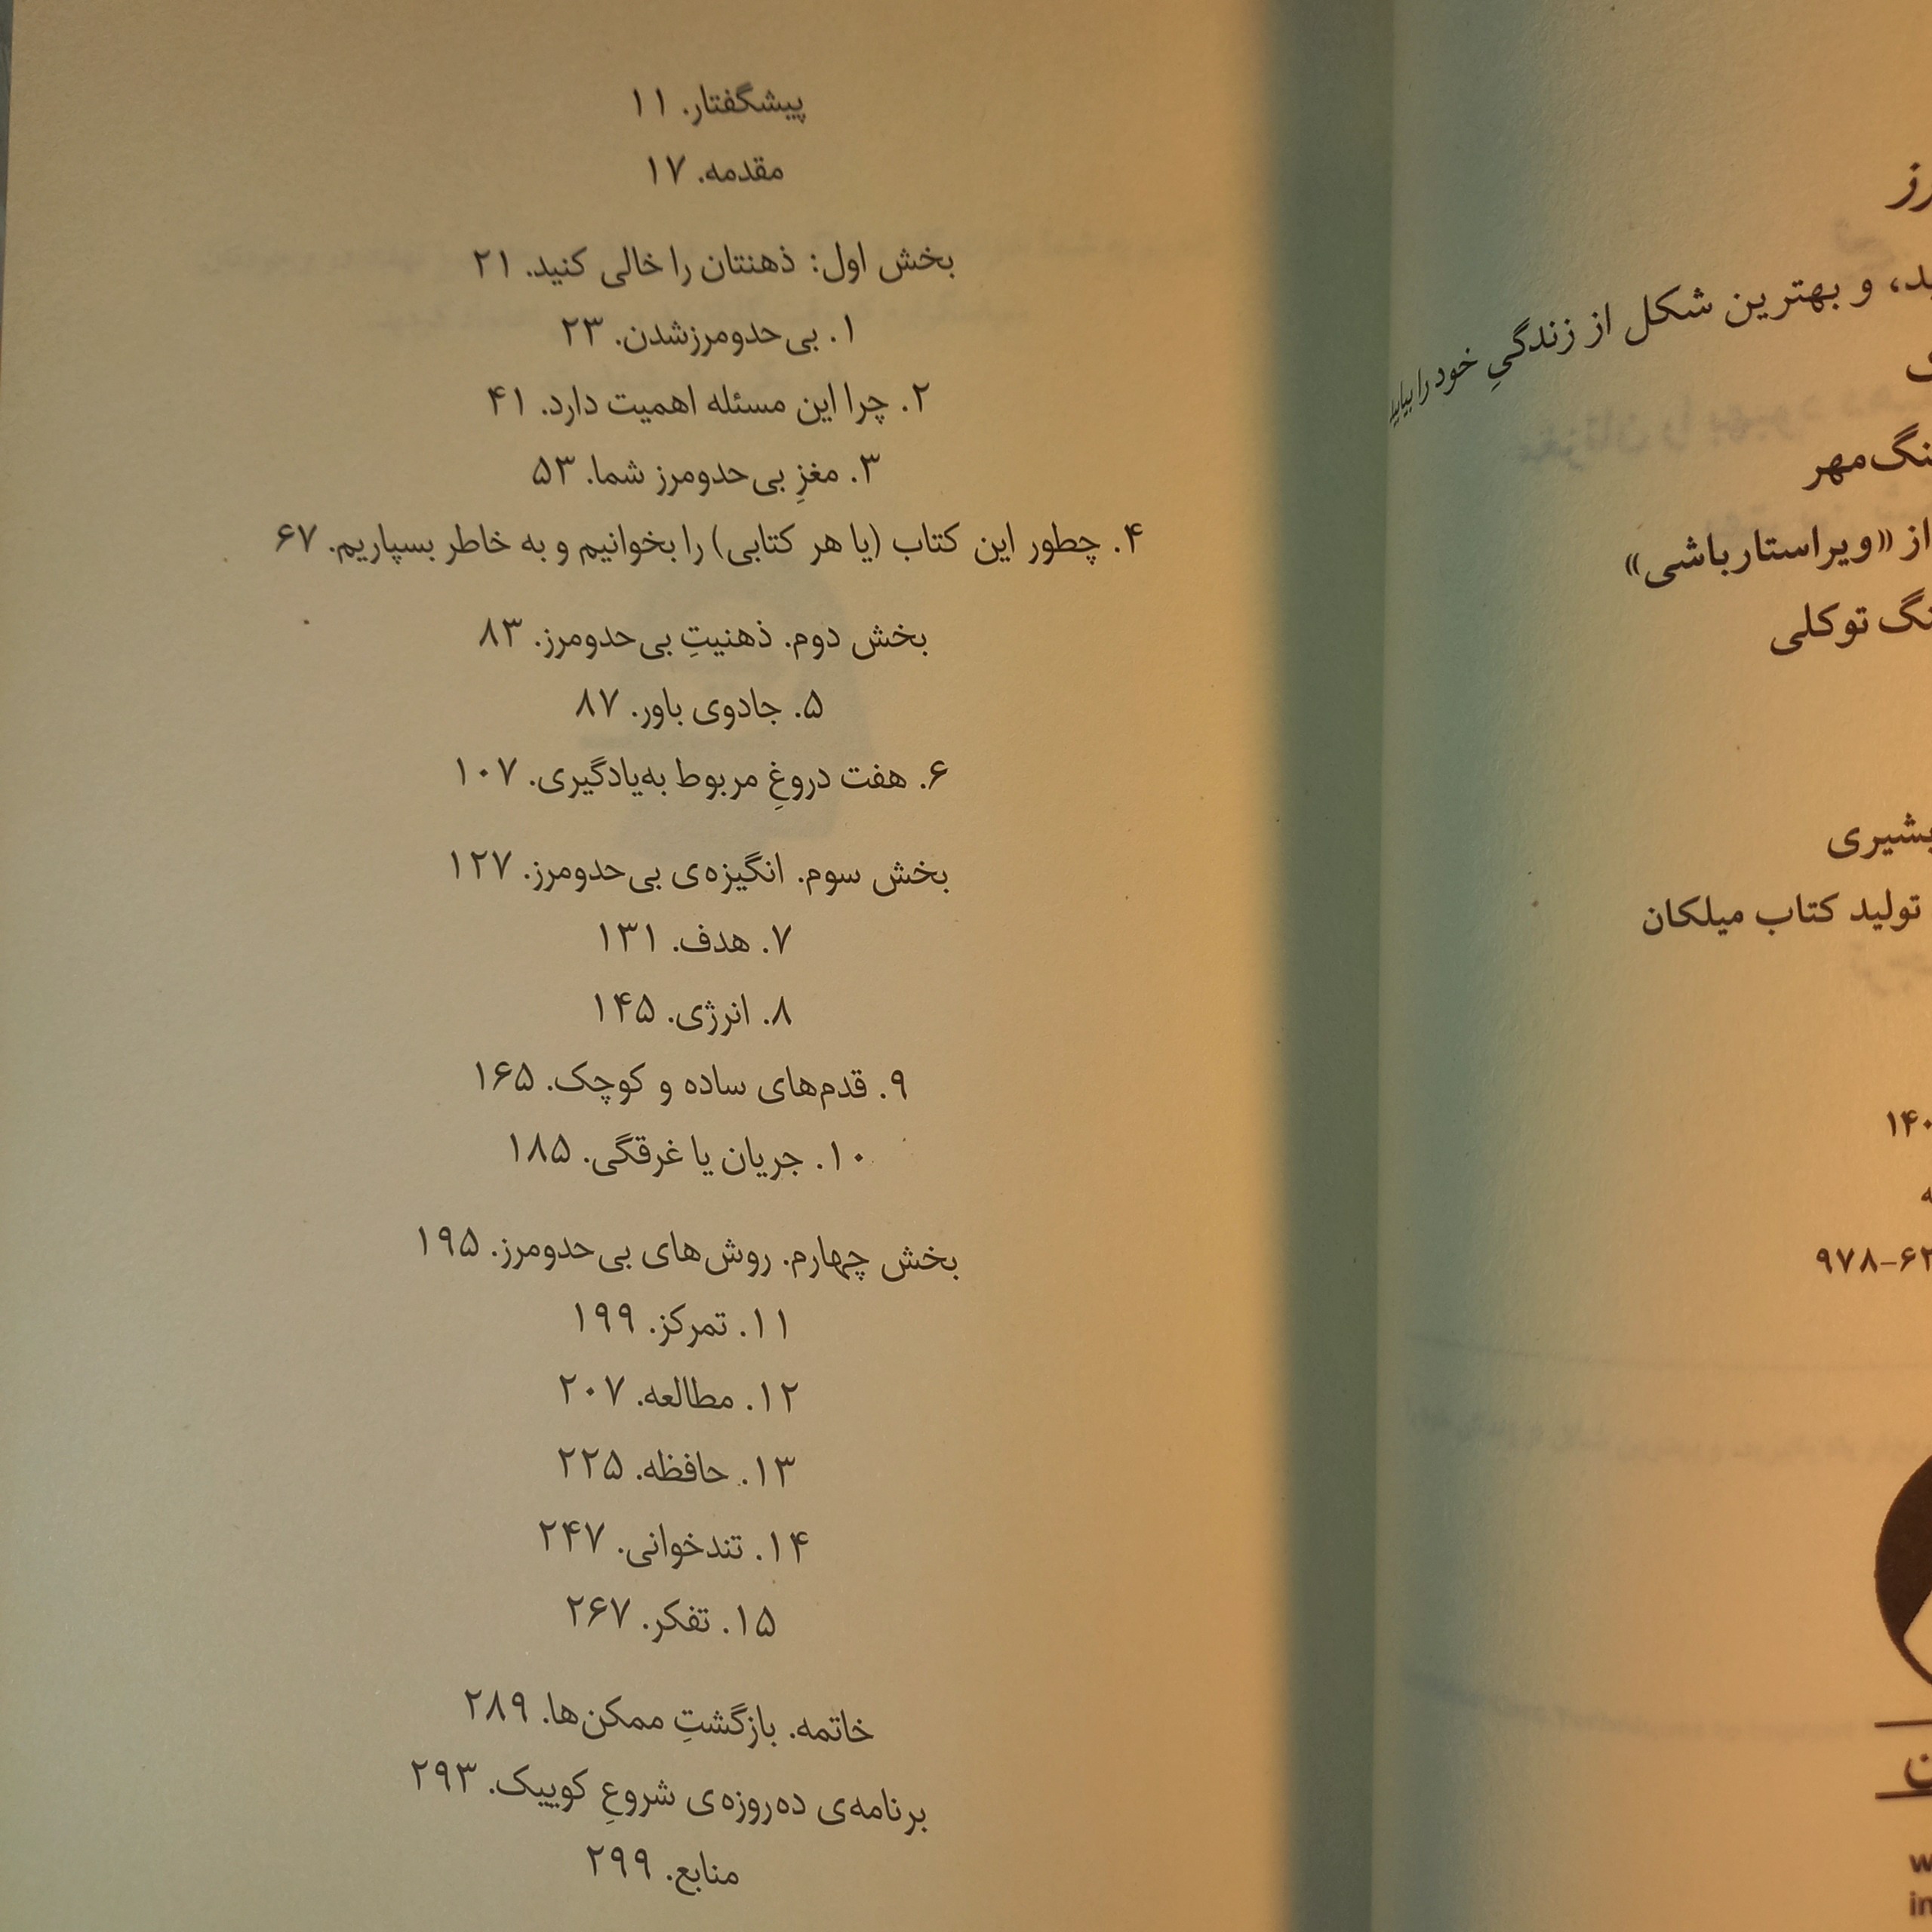 پیشگفتار. ۱۱
مقدمه. ۱۷
بخش اول: ذهنتان را خالی کنید. ۲۱
۱. بی‌حدومرزشدن. ۲۳
۲. چرا این مسئله اهمیت دارد. ۴۱
۳. مغزِ بی‌حدومرز شما. ۵۳
۴. چطور این کتاب (یا هر کتابی) را بخوانیم و به خاطر بسپاریم. ۶۷
بخش دوم. ذهنیتِ بی‌حدومرز. ۸۳
۵. جادوی باور. ۸۷
۶. هفت دروغِ مربوط به‌یادگیری. ۱۰۷
بخش سوم. انگیزه‌ی بی‌حدومرز. ۱۲۷
۷. هدف. ۱۳۱
۸. انرژی. ۱۴۵
۹. قدم‌های ساده و کوچک. ۱۶۵
۱۰. جریان یا غرقگی. ۱۸۵
بخش چهارم. روش‌های بی‌حدومرز. ۱۹۵
۱۱. تمرکز. ۱۹۹
۱۲. مطالعه. ۲۰۷
۱۳. حافظه. ۲۲۵
۱۴. تندخوانی. ۲۴۷
۱۵. تفکر. ۲۶۷
خاتمه. بازگشتِ ممکن‌ها. ۲۸۹
برنامه‌ی ده‌روزه‌ی شروعِ کوییک. ۲۹۳
منابع. ۲۹۹
و بهترین شکل از زندگیِ خود را بیابید
از «ویراستارباشی»
توکلی
تولید کتاب میلکان